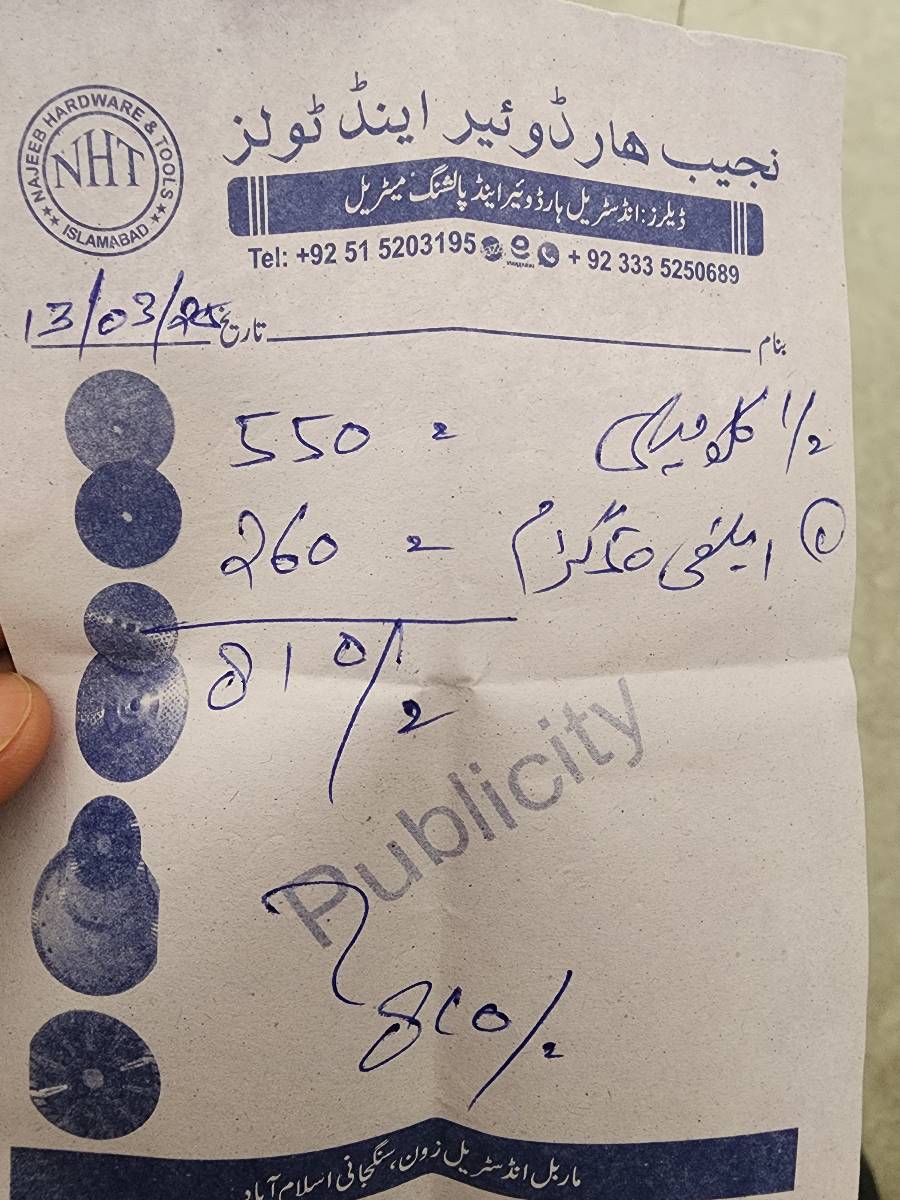 NAJEEB HARDWARE & TOOLS
NHT
ISLAMABAD
نجیب ھارڈوئیر اینڈ ٹولز
ڈیلرز: انڈسٹریل ہارڈوئیر اینڈ پالشنگ میٹریل
Tel: +92 51 5203195 + 92 333 5250689
بنام تاریخ 13/03/25
1/2 کلو = 550
ایلفی گرام = 260
810/=
Publicity
810/=
ماربل انڈسٹریل زون، سنگجانی اسلام آباد